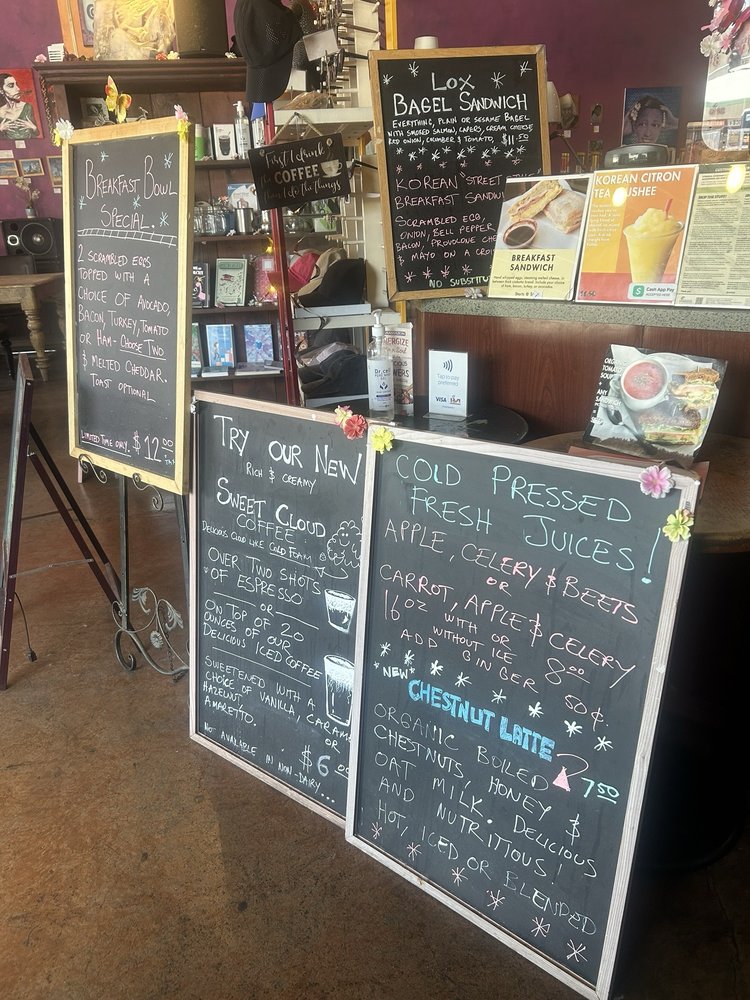 BREAKFAST BOWL
SPECIAL.
2 SCRAMBLED EGGS
TOPPED WITH A
CHOICE OF AVOCADO,
BACON, TURKEY, TOMATO
OR HAM - CHOOSE TWO
& MELTED CHEDDAR.
TOAST OPTIONAL
LIMITED TIME ONLY. $12.00
First I drink
the COFFEE
then I do the things
LOX
BAGEL SANDWICH
EVERYTHING, PLAIN OR SESAME BAGEL
WITH SMOKED SALMON, CAPERS, CREAM CHEESE
RED ONION, CUCUMBER & TOMATO, $11.50
KOREAN "STREET
BREAKFAST SANDWI
SCRAMBLED EGG,
ONION, BELL PEPPER
BACON, PROVOLONE CHE
& MAYO ON A CRO
NO SUBSTITU
BREAKFAST
SANDWICH
KOREAN CITRON
TEA SLUSHEE
Cash App Pay
ACCEPTED HERE
Tap to pay
preferred
VISA
ORGANIC
TOMATO
SOUP
+
ANY
SANDWICH
TRY OUR NEW
RICH & CREAMY
SWEET CLOUD
COFFEE
DELICIOUS CLOUD LIKE COLD FOAM
OVER TWO SHOTS
OF ESPRESSO
OR
ON TOP OF 20
OUNCES OF OUR
DELICIOUS ICED COFFEE
SWEETENED WITH A
CHOICE OF VANILLA, CARAM
HAZELNUT, OR
AMARETTO.
$6.00
NOT AVAILABLE IN NON-DAIRY...
COLD PRESSED
FRESH JUICES!
APPLE, CELERY & BEETS
OR
CARROT, APPLE & CELERY
16 OZ WITH OR
WITHOUT ICE 8.00
ADD GINGER 50¢.
"NEW"
CHESTNUT LATTE
7.50
ORGANIC BOILED
CHESTNUTS, HONEY &
OAT MILK. DELICIOUS
AND NUTRITIOUS!
HOT, ICED OR BLENDED